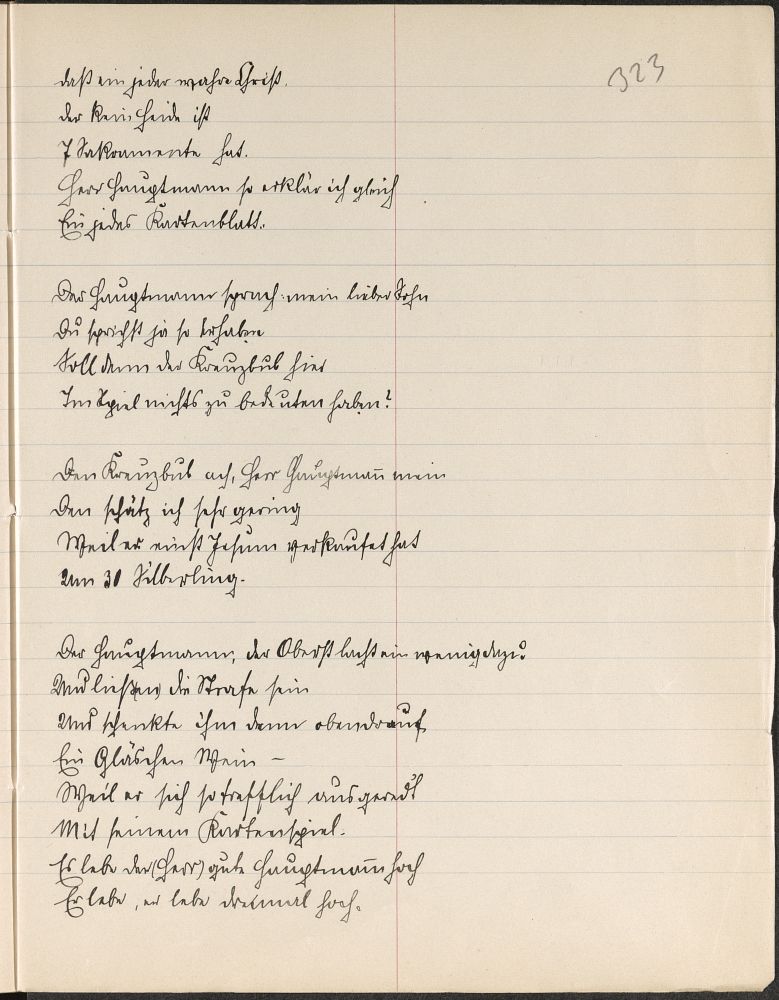 323
daß ein jeder wahre Christ,
der kein Heide ist
7 Sakramente hat.
Herr Hauptmann so erklär ich gleich
Ein jedes Kartenblatt.
Der Hauptmann sprach: mein lieber Sohn
Du sprichst ja so erhaben
Soll denn der Kreuzbub hier
Im Spiel nichts zu bedeuten haben?
Den Kreuzbub ach, Herr Hauptmañ mein
Den schätz ich sehr gering
Weil er einst Jesum verkaufet hat
Um 30 Silberling.
Der Hauptmann, der Oberst lacht ein wenig dazu
Und ließen die Strafe sein
Und schenkte ihm denn obendrauf
Ein Gläschen Wein –
Weil er sich so trefflich ausgeredt
Mit seinem Kartenspiel.
Es lebe der (Herr) gute Hauptmañ hoch
Er lebe, er lebe dreimal hoch.